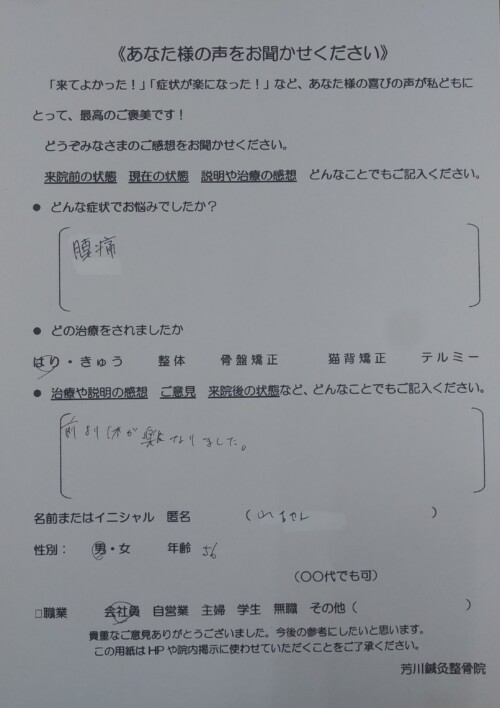 《あなた様の声をお聞かせください》
「来てよかった！」「症状が楽になった！」など、あなた様の喜びの声が私どもに
とって、最高のご褒美です！
どうぞみなさまのご感想をお聞かせください。
来院前の状態　現在の状態　説明や治療の感想　どんなことでもご記入ください。
● どんな症状でお悩みでしたか？
腰痛
● どの治療をされましたか
はり・きゅう　整体　骨盤矯正　猫背矯正　テルミー
● 治療や説明の感想　ご意見　来院後の状態など、どんなことでもご記入ください。
前より体が楽になりました。
名前またはイニシャル　匿名　（　　　）
性別：　男・女　年齢　56
（〇〇代でも可）
□職業　会社員　自営業　主婦　学生　無職　その他（　　　）
貴重なご意見ありがとうございました。今後の参考にしたいと思います。
この用紙はHPや院内掲示に使わせていただくことをご了承ください。
芳川鍼灸整骨院